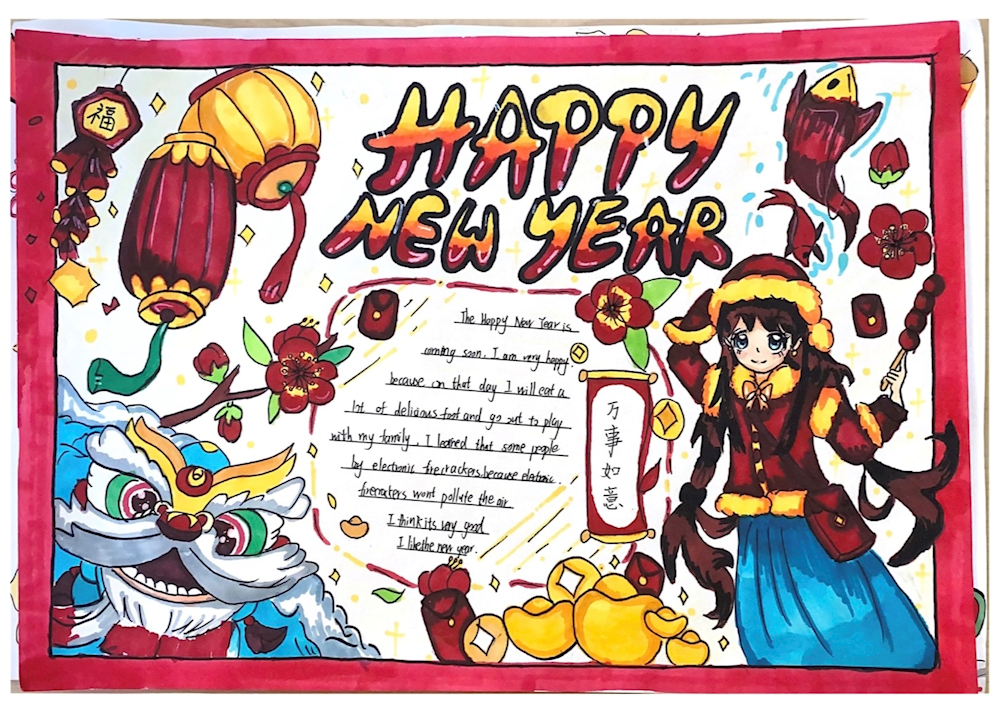 福
HAPPY
NEW YEAR
The Happy New Year is
coming soon. I am very happy.
because on that day I will eat a
lot of delicious foot and go out to play
with my family. I leaned that some people
by electronic firecrackers.because eletronic.
firecraters wont pollute the air
I think its very good
I like the new year.
万事如意